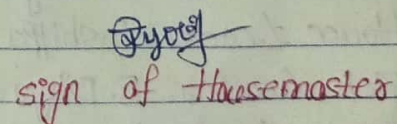 sign of Housemaster